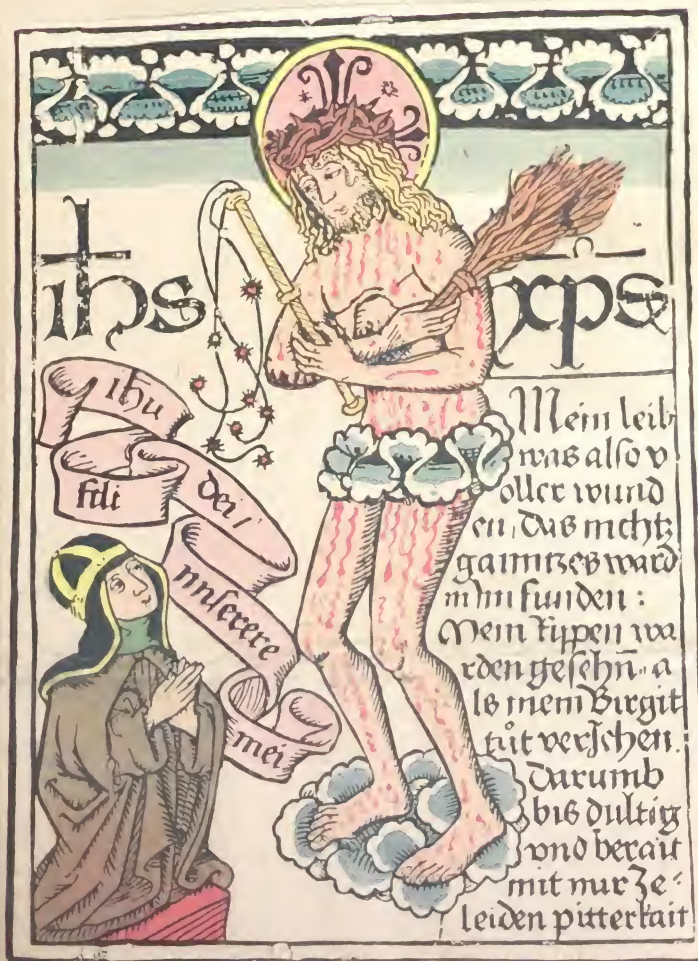 ihs
xps
ihu
fili
dei
miserere
mei
Mein leib
was also v
oller wund
en, das nichtz
ganntzes ward
in im funden :
Mein Rippen wa
rden gesehn̄ a
ls mein Birgit
tůt verJehen.
Darumb
bis dultig
vnd berait
mit mir Ze
leiden pitterkait